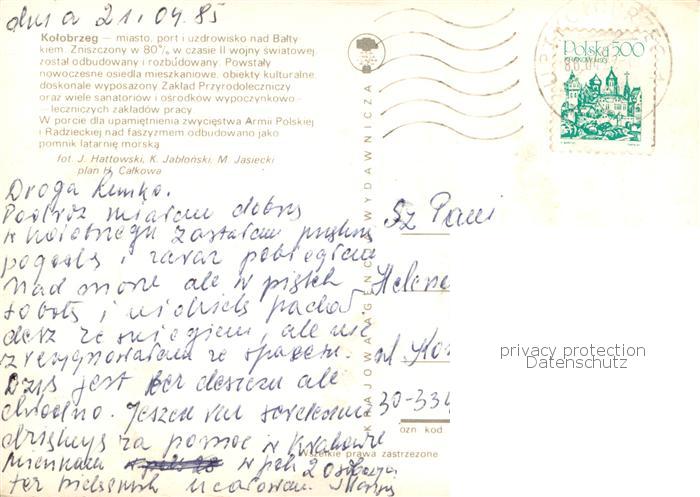 dnia 21.04.85
Kołobrzeg — miasto, port i uzdrowisko nad Bałty
kiem. Zniszczony w 80% w czasie II wojny światowej,
został odbudowany i rozbudowany. Powstały
nowoczesne osiedla mieszkaniowe, obiekty kulturalne,
doskonale wyposażony Zakład Przyrodoleczniczy
oraz wiele sanatoriów i ośrodków wypoczynkowo-
-leczniczych zakładów pracy.
W porcie dla upamiętnienia zwycięstwa Armii Polskiej
i Radzieckiej nad faszyzmem odbudowano jako
pomnik latarnię morską
fot. J. Hattowski, K. Jabłoński, M. Jasiecki
plan H. Całkowa
Droga
Podróż miałam dobrą
w Kołobrzegu zastałam piękną
pogodę i zaraz pobiegłam
nad morze ale w piątek
sobotę i niedzielę padał
deszcz ze śniegiem, ale nie
zrezygnowałam ze spaceru.
Dziś jest bez deszczu ale
chłodno. Jeszcze raz serdecznie
dziękuję za pomoc w Krakowie
mieszkam w pok 20
Całkowa
KRAJOWA AGENCJA WYDAWNICZA
Polska 500
KRAKÓW 1493
Sz Pani
Helena
ul
30-334
ozn kod
Wszelkie prawa zastrzeżone
privacy protection
Datenschutz